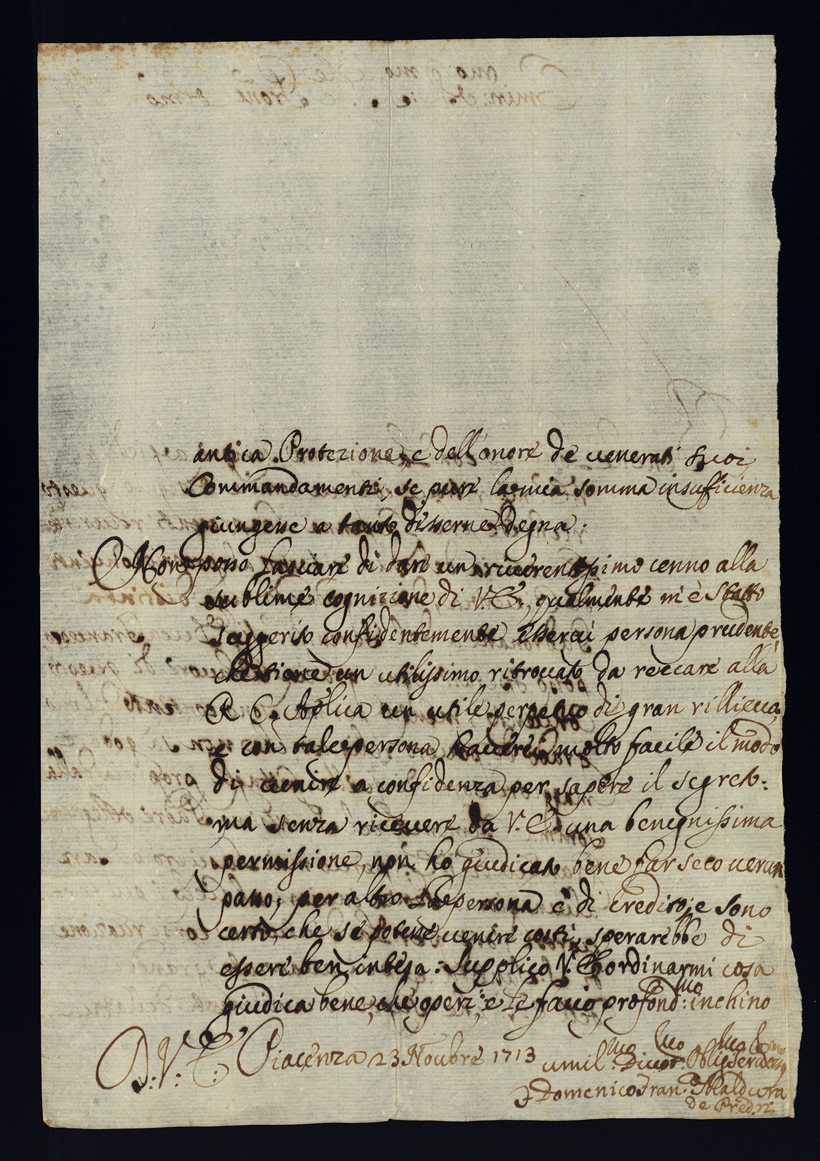 antica Protezione, e dell'onore de venerati suoi
Commandamenti, se pure la mia somma insufficienza
giungesse a tanto di serne degna.
Non posso lasciare di dare un riverentissimo cenno alla
sublime cognizione di V. E., qualmente m'è statto
suggerito confidentemente esserci persona prudente,
che tiene un utilissimo ritrovato da reccare alla
R. C. un utile perpetuo di gran rillievo,
e con tale persona molto facile il modo
di venire a confidenza per sapere il segreto:
ma senza ricevere da V. E. una benegnissima
permissione, non ho giudicato bene far seco verun
patto; per altro la persona è di credito, e sono
certo, che se potesse venire costì, sperarebbe di
essere ben intesa: Supplico V. E. ordinarmi cosa
giudica bene, che operi; e le faccio profond.mo inchino
D: V: E: Piacenza 23 Novbre 1713 umil.mo Divot.mo Oblig.mo
Domenico Fran.co
de